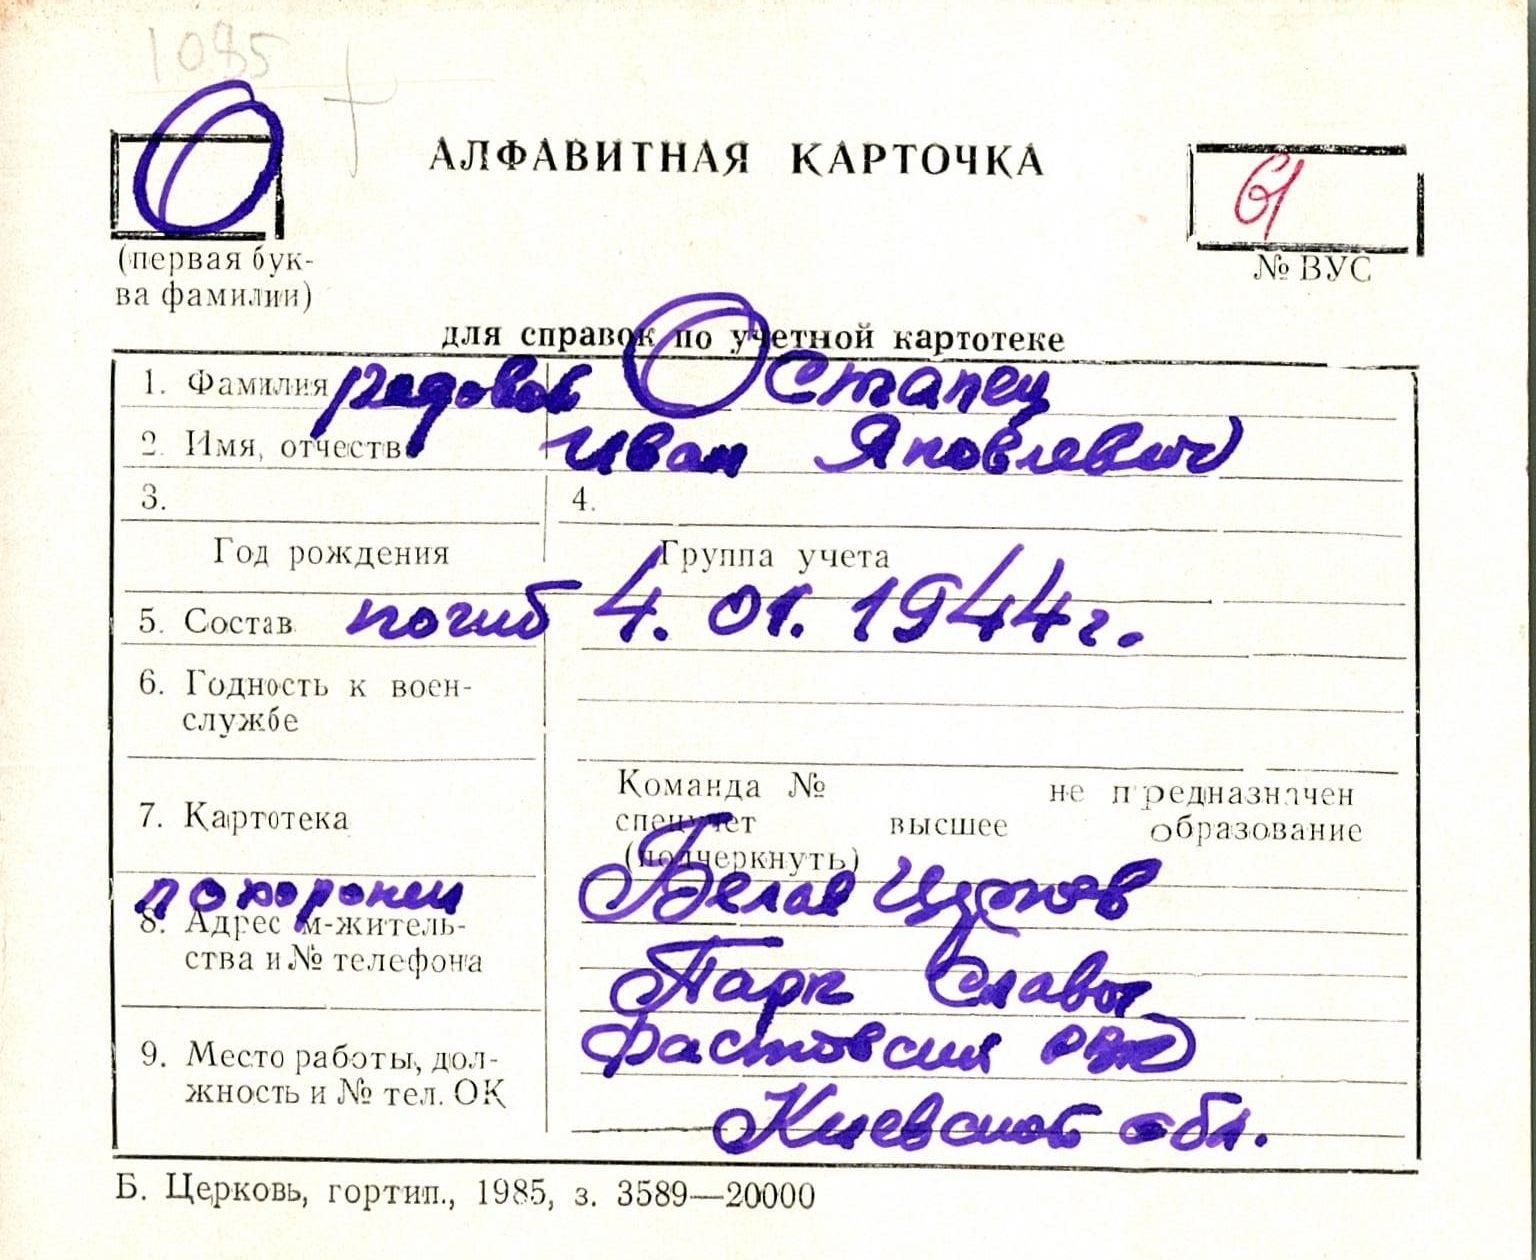 1085
О
АЛФАВИТНАЯ КАРТОЧКА
61
(первая бук-
ва фамилии)
№ ВУС
для справок по учетной картотеке
1. Фамилия рядовой Остапец
2. Имя, отчество Иван Яковлевич
3. 4.
Год рождения Группа учета
5. Состав погиб 4.01.1944г.
6. Годность к воен-
службе
Команда № не предназначен
7. Картотека спецучет высшее образование
(подчеркнуть)
похоронен Белая Церковь
8. Адрес м-житель-
ства и № телефона
Парк Славы
Фастовский РВК
9. Место работы, дол-
жность и № тел. ОК
Киевской обл.
Б. Церковь, гортип., 1985, з. 3589—20000